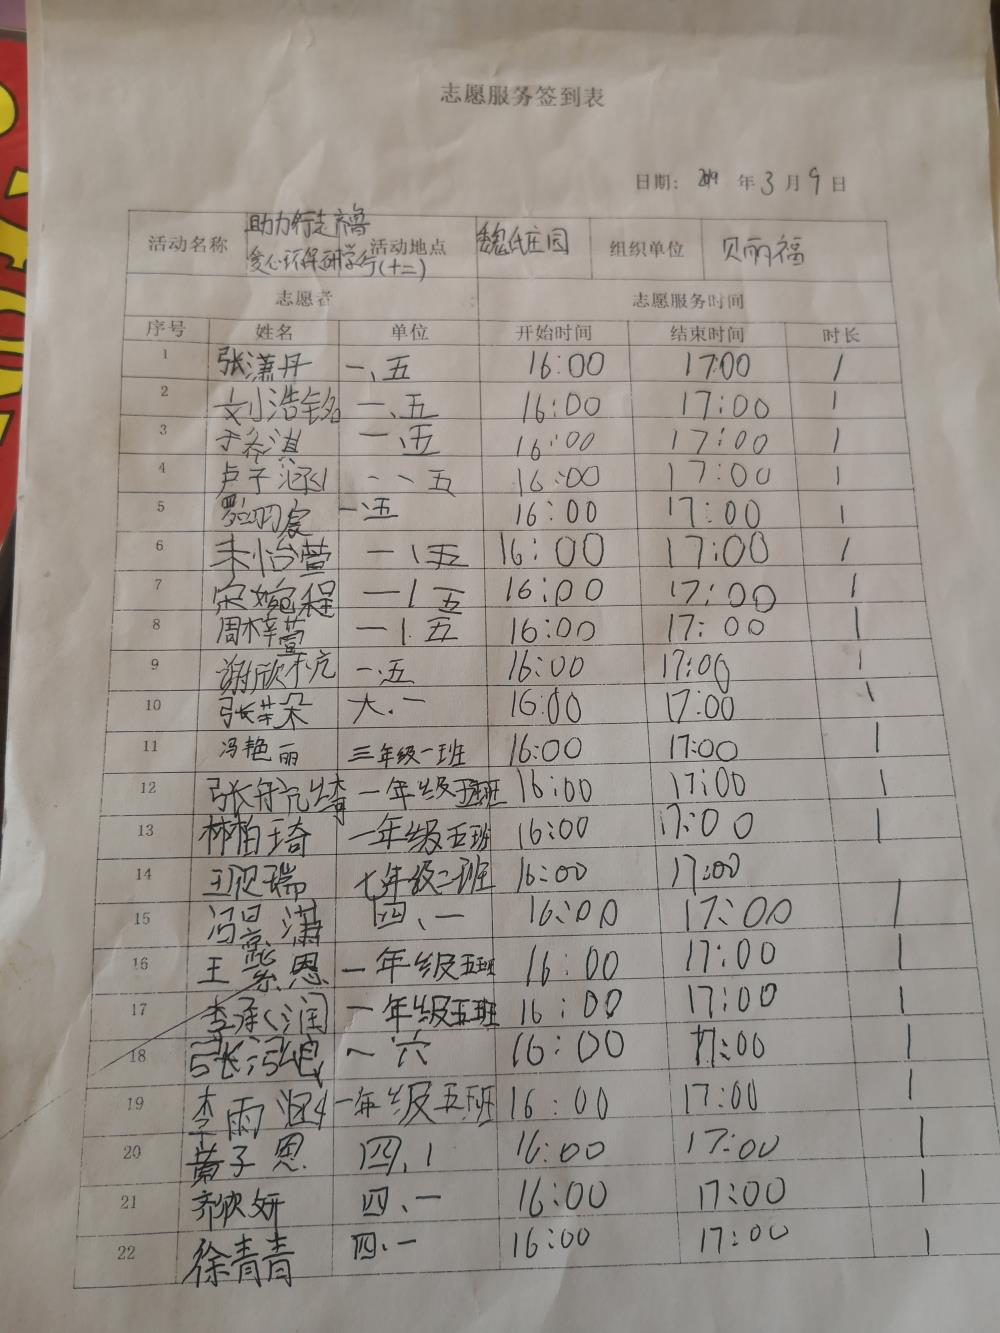 志愿服务签到表
日期: 2019 年 3 月 9 日
活动名称 助力行走齐鲁 爱心环保研学行(十二) 活动地点 魏氏庄园 组织单位 贝丽福
志愿者 志愿服务时间
序号 姓名 单位 开始时间 结束时间 时长
1 张潇丹 一、五 16:00 17:00 1
2 刘浩铭 一、五 16:00 17:00 1
3 于希淇 一、五 16:00 17:00 1
4 卢子涵 一、五 16:00 17:00 1
5 一、五 16:00 17:00 1
6 朱怡萱 一、五 16:00 17:00 1
7 宋婉程 一、五 16:00 17:00 1
8 周梓萱 一、五 16:00 17:00 1
9 谢欣杭 一、五 16:00 17:00 1
10 张芊朵 六、一 16:00 17:00 1
11 冯艳丽 三年级一班 16:00 17:00 1
12 一年级五班 16:00 17:00 1
13 林柏琦 一年级五班 16:00 17:00 1
14 王瑞 七年级二班 16:00 17:00
15 冯昱潇 四、一 16:00 17:00 1
16 王懿恩 一年级五班 16:00 17:00 1
17 李承润 一年级五班 16:00 17:00 1
18 一 六 16:00 17:00 1
19 李雨涵 一年级五班 16:00 17:00 1
20 黄子恩 四、1 16:00 17:00 1
21 齐欣妍 四、一 16:00 17:00 1
22 徐青青 四、一 16:00 17:00 1